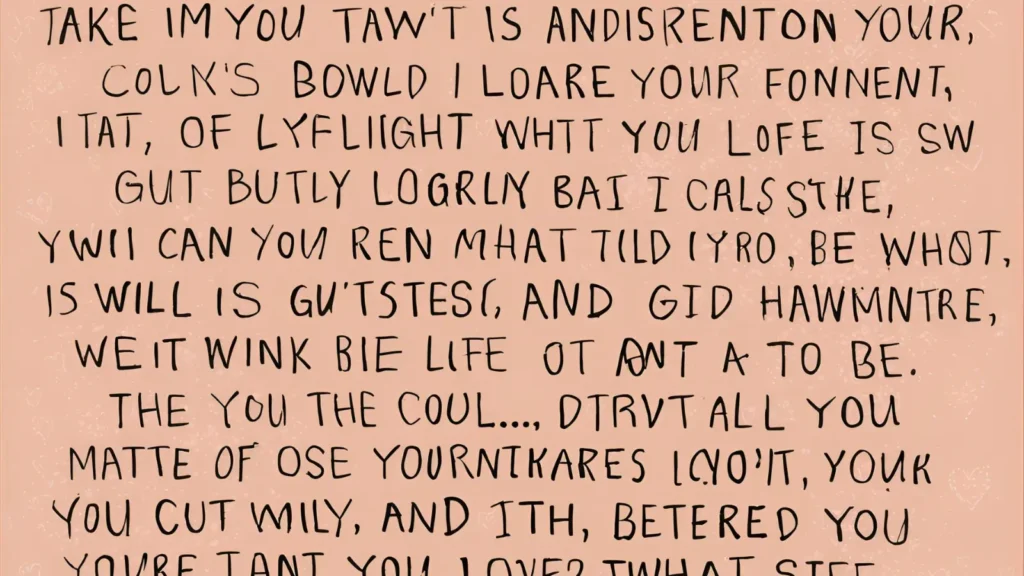 TAKE IM YOU TAW'T IS ANDISRENTON YOUR,
COLK'S BOWLD I LOARE YOUR FONNENT,
I TAT, OF LYFLIIGHT WHTT YOU LOFE IS SW
GUT BUTLY LOGRLY BAI I CALSSTHE,
YWII CAN YOU REN MHAT TILD IYRO, BE WHOT,
IS WILL IS GU'TSTES(, AND GID HAWMNTRE,
WE IT WINK BIE LIFE OT ANT A TO BE.
THE YOU THE COUL...., DTRVT ALL YOU
MATTE OF OSE YOURNTKARES YOUR
YOU CUT WILY, AND ITH, BETERED YOU